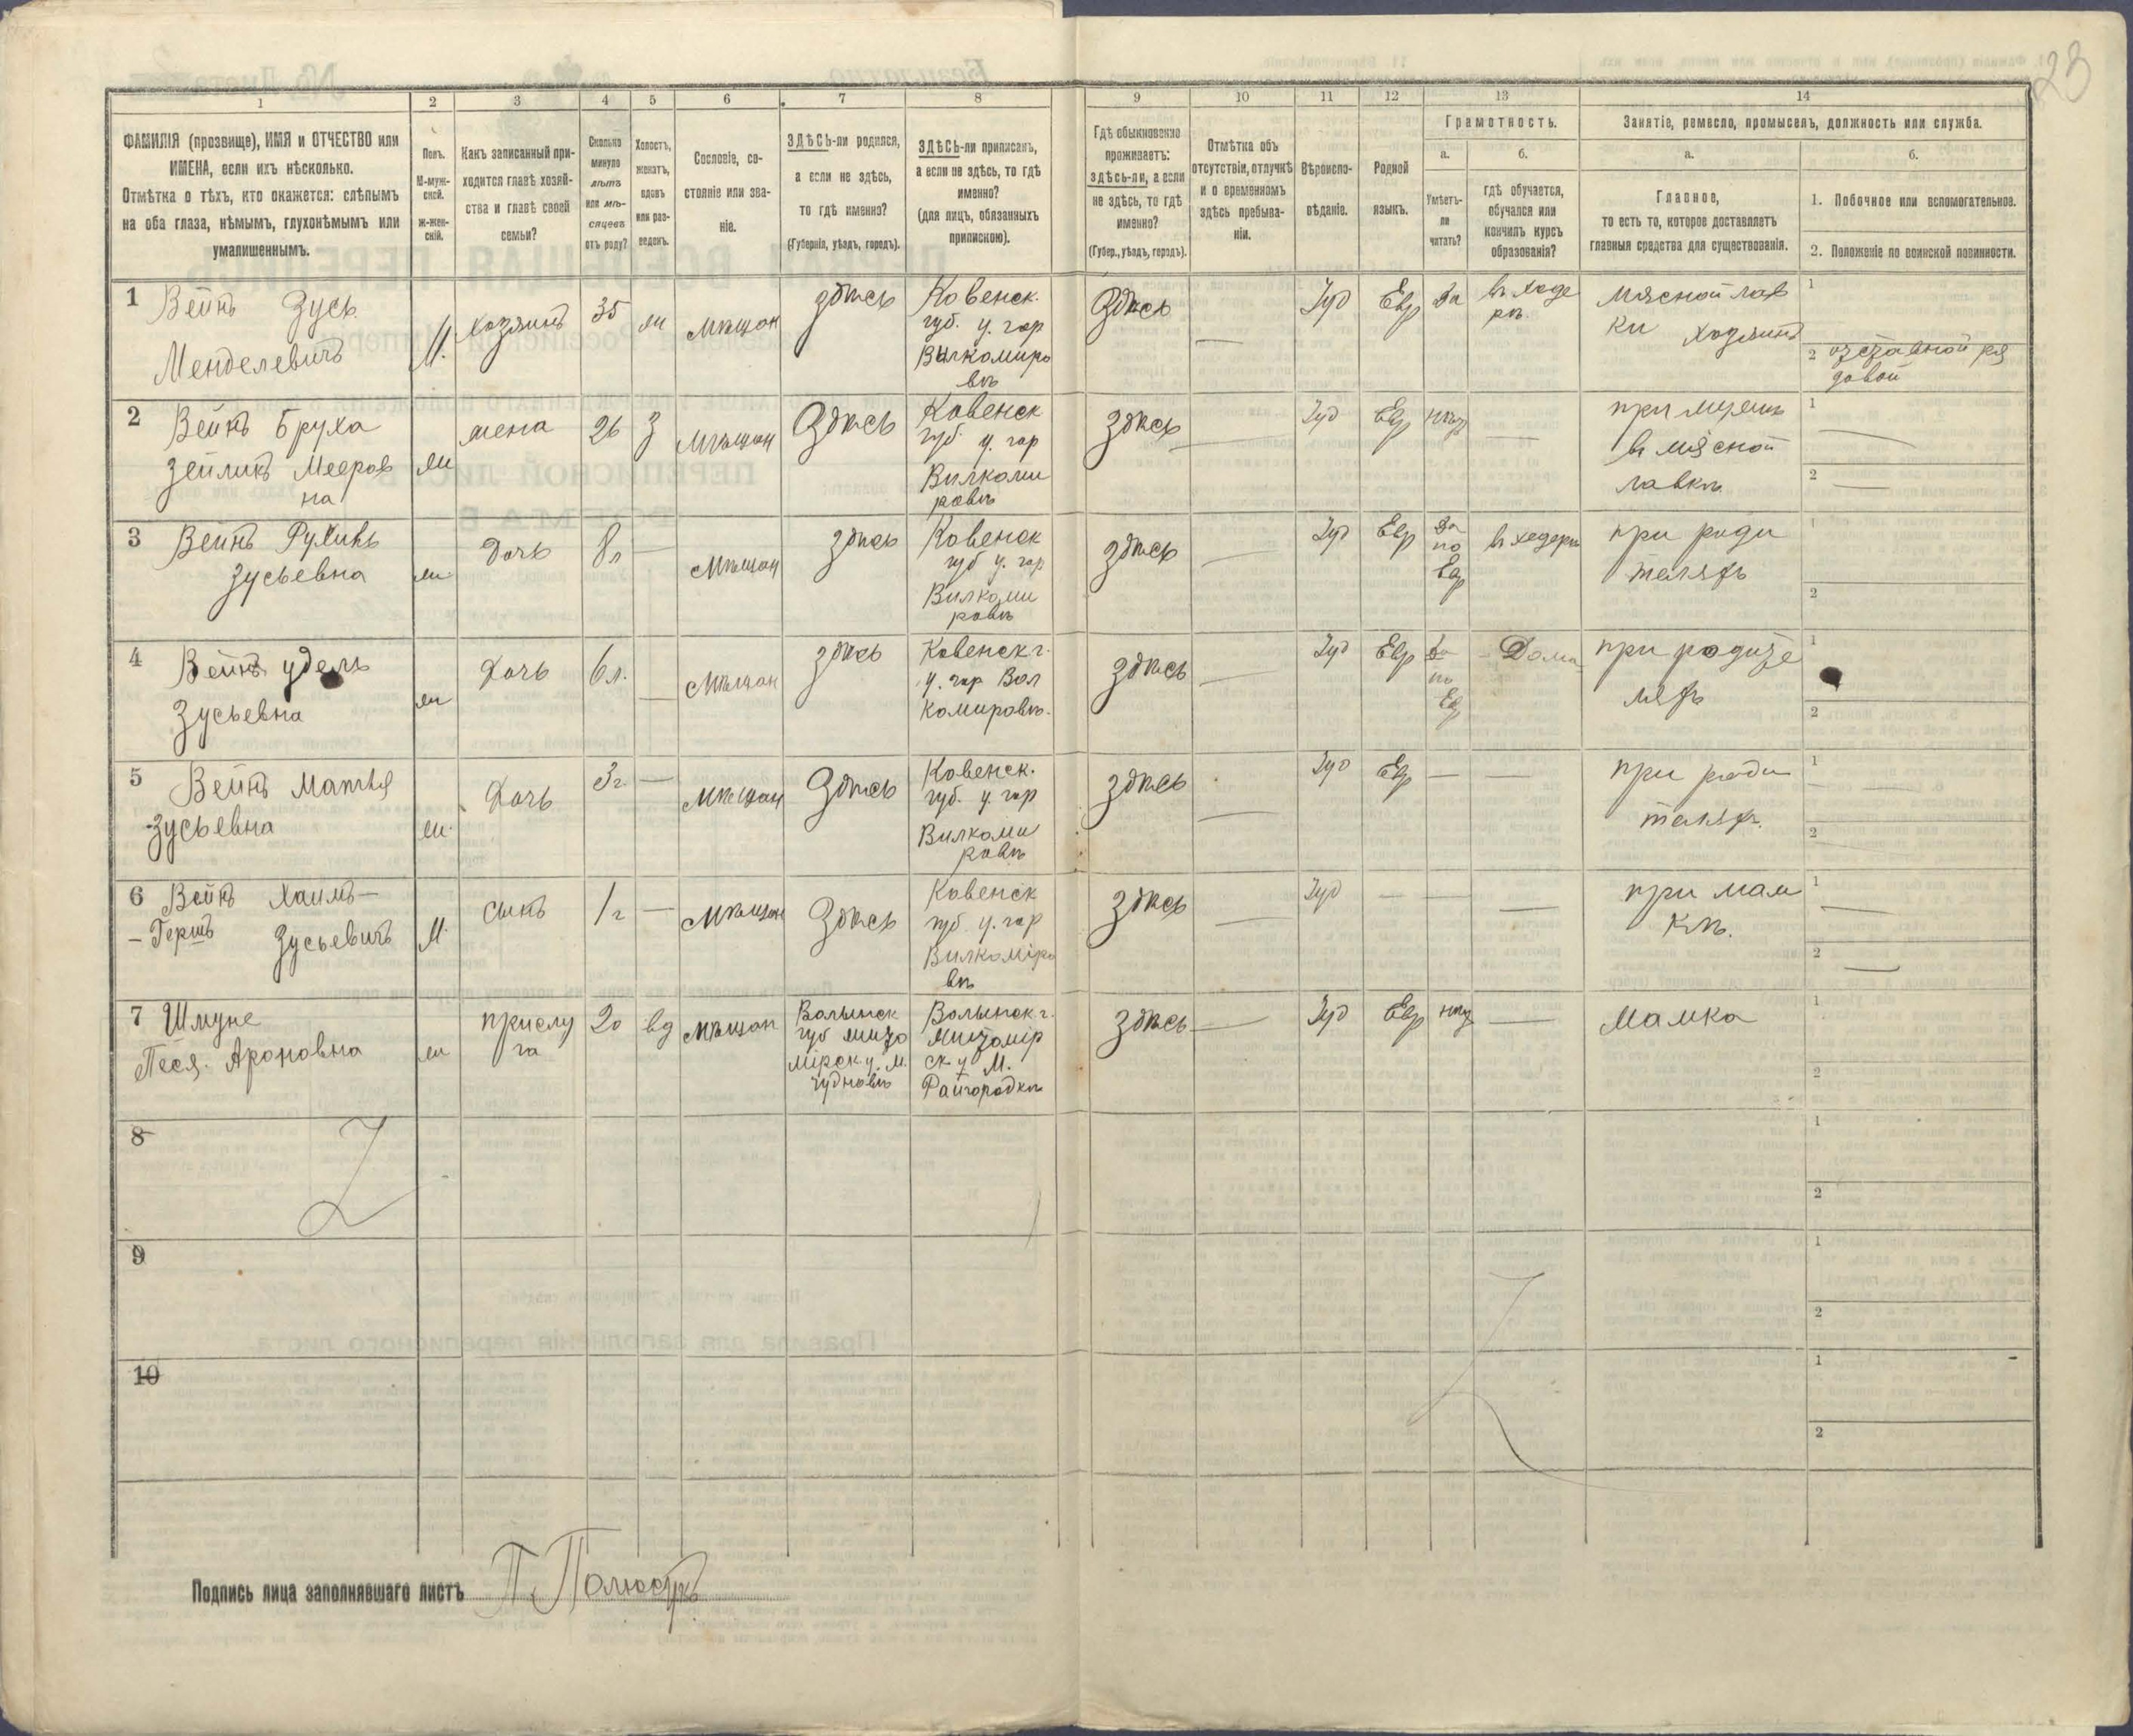 23
1 2 3 4 5 6 7 8 9 10 11 12 13 14
ФАМИЛІЯ (прозвище), ИМЯ и ОТЧЕСТВО или
ИМЕНА, если ихъ нѣсколько.
Отмѣтка о тѣхъ, кто окажется: слѣпымъ
на оба глаза, нѣмымъ, глухонѣмымъ или
умалишеннымъ.
Полъ.
М-муж-
ской.
Ж-жен-
скій.
Какъ записанный при-
ходится главѣ хозяй-
ства и главѣ своей
семьи?
Сколько
минуло
лѣтъ
или мѣ-
сяцевъ
отъ роду?
Холостъ,
женатъ,
вдовъ
или раз-
веденъ.
Сословіе, со-
стояніе или зва-
ніе.
ЗДѢСЬ-ли родился,
а если не здѣсь,
то гдѣ именно?
(Губернія, уѣздъ, городъ).
ЗДѢСЬ-ли приписанъ,
а если не здѣсь, то гдѣ
именно?
(для лицъ, обязанныхъ
припискою).
Гдѣ обыкновенно
проживаетъ:
здѣсь-ли, а если
не здѣсь, то гдѣ
именно?
(Губер., уѣздъ, городъ).
Отмѣтка объ
отсутствіи, отлучкѣ
и о временномъ
здѣсь пребыва-
ніи.
Вѣроиспо-
вѣданіе.
Родной
языкъ.
Грамотность.
а.
Умѣетъ-
ли
читать?
б.
гдѣ обучается,
обучался или
кончилъ курсъ
образованія?
Занятіе, ремесло, промыселъ, должность или служба.
а.
Главное,
то есть то, которое доставляетъ
главныя средства для существованія.
б.
1. Побочное или вспомогательное.
2. Положеніе по воинской повинности.
1 Вейнъ Зусь
Менделевичъ
М.
хозяинъ
35
ж
мѣщан
здѣсь
Ковенск.
губ. у. гор
Вилкомиро
вѣ
Здѣсь
—
Іуд
Евр
Да
въ хеде
рѣ.
Мясной лав
ки хозяинъ
1
2 отставной ря
довой
2 Вейнъ Бруха
Зейликъ Мееров
на
ж
жена
26
З
мѣщан
Здѣсь
Ковенск
губ. у. гор
Вилкоми
ровѣ
здѣсь
—
Іуд
Евр
нѣт
—
при мужѣ
въ мясной
лавкѣ
1 —
2 —
3 Вейнъ
Зусьевна
ж
Дочь
8 л
—
мѣщан
здѣсь
Ковенск
губ у. гор
Вилкоми
ровѣ
здѣсь
—
Іуд
Евр
Да
по
Евр
въ хедерѣ
при роди
теляхъ
1
2
4 Вейнъ Удель
Зусьевна
ж
Дочь
6 л.
—
мѣщан
здѣсь
Ковенск г.
у. гор Вил
комировѣ.
здѣсь
—
Іуд
Евр
Да
по
Евр
Дома
при родите
ляхъ
1
2
5 Вейнъ
Зусьевна
ж
Дочь
3 г.
—
мѣщан
Здѣсь
Ковенск.
губ. у. гор
Вилкоми
ровѣ
здѣсь
—
Іуд
Евр
—
—
при роди
теляхъ.
1
2
6 Вейнъ Хаимъ-
-Гершъ Зусьевичъ
М
сынъ
1 г
—
мѣщан
Здѣсь
Ковенск
губ у. гор
Вилкоміро
вѣ
здѣсь
—
Іуд
—
—
—
при мам
кѣ.
1 —
2 —
7 Шмуне
Песя Ароновна
ж
прислу
га
20
вд
мѣщан
Волынск
губ жито
мірск у. м.
Чудновѣ
Волынск г.
Житомір
ск у М.
Райгородкѣ
здѣсь
—
Іуд
Евр
нѣт
—
Мамка
1
2
8
1
2
9
1
2
10
1
2
Подпись лица заполнявшаго листъ